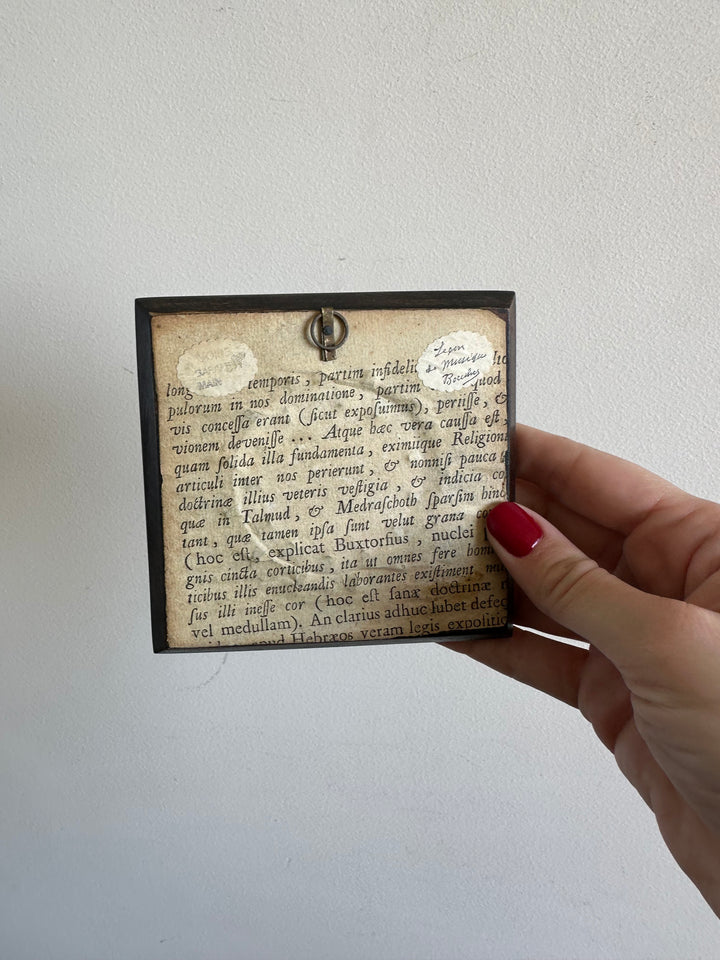 Leçon
de Musique
Boucher
long temporis, partim infideli
pulorum in nos dominatione, partim quod
vis conceſſa erant (ſicut expoſuimus), periiſſe, &
vionem deveniſſe ... Atque hæc vera cauſſa eſt,
quam ſolida illa fundamenta, eximiique Religioni
articuli inter nos perierunt, & nonniſi pauca
doctrinæ illius veteris veſtigia, & indicia co
quæ in Talmud, & Medraſchoth ſparſim hinc
tant, quæ tamen ipſa ſunt velut grana co
(hoc eſt, explicat Buxtorfius, nuclei
gnis cincta corticibus, ita ut omnes fere homi
ticibus illis enucleandis laborantes exiſtiment,
ſus illi ineſſe cor (hoc eſt ſanæ doctrinæ
vel medullam). An clarius adhuc lubet defec
apud Hebræos veram legis expoſitio